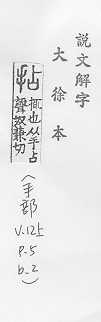 說文解字
大徐本
拈
也从手占
聲奴兼切
(手部
V.12上
P.5
b-2)